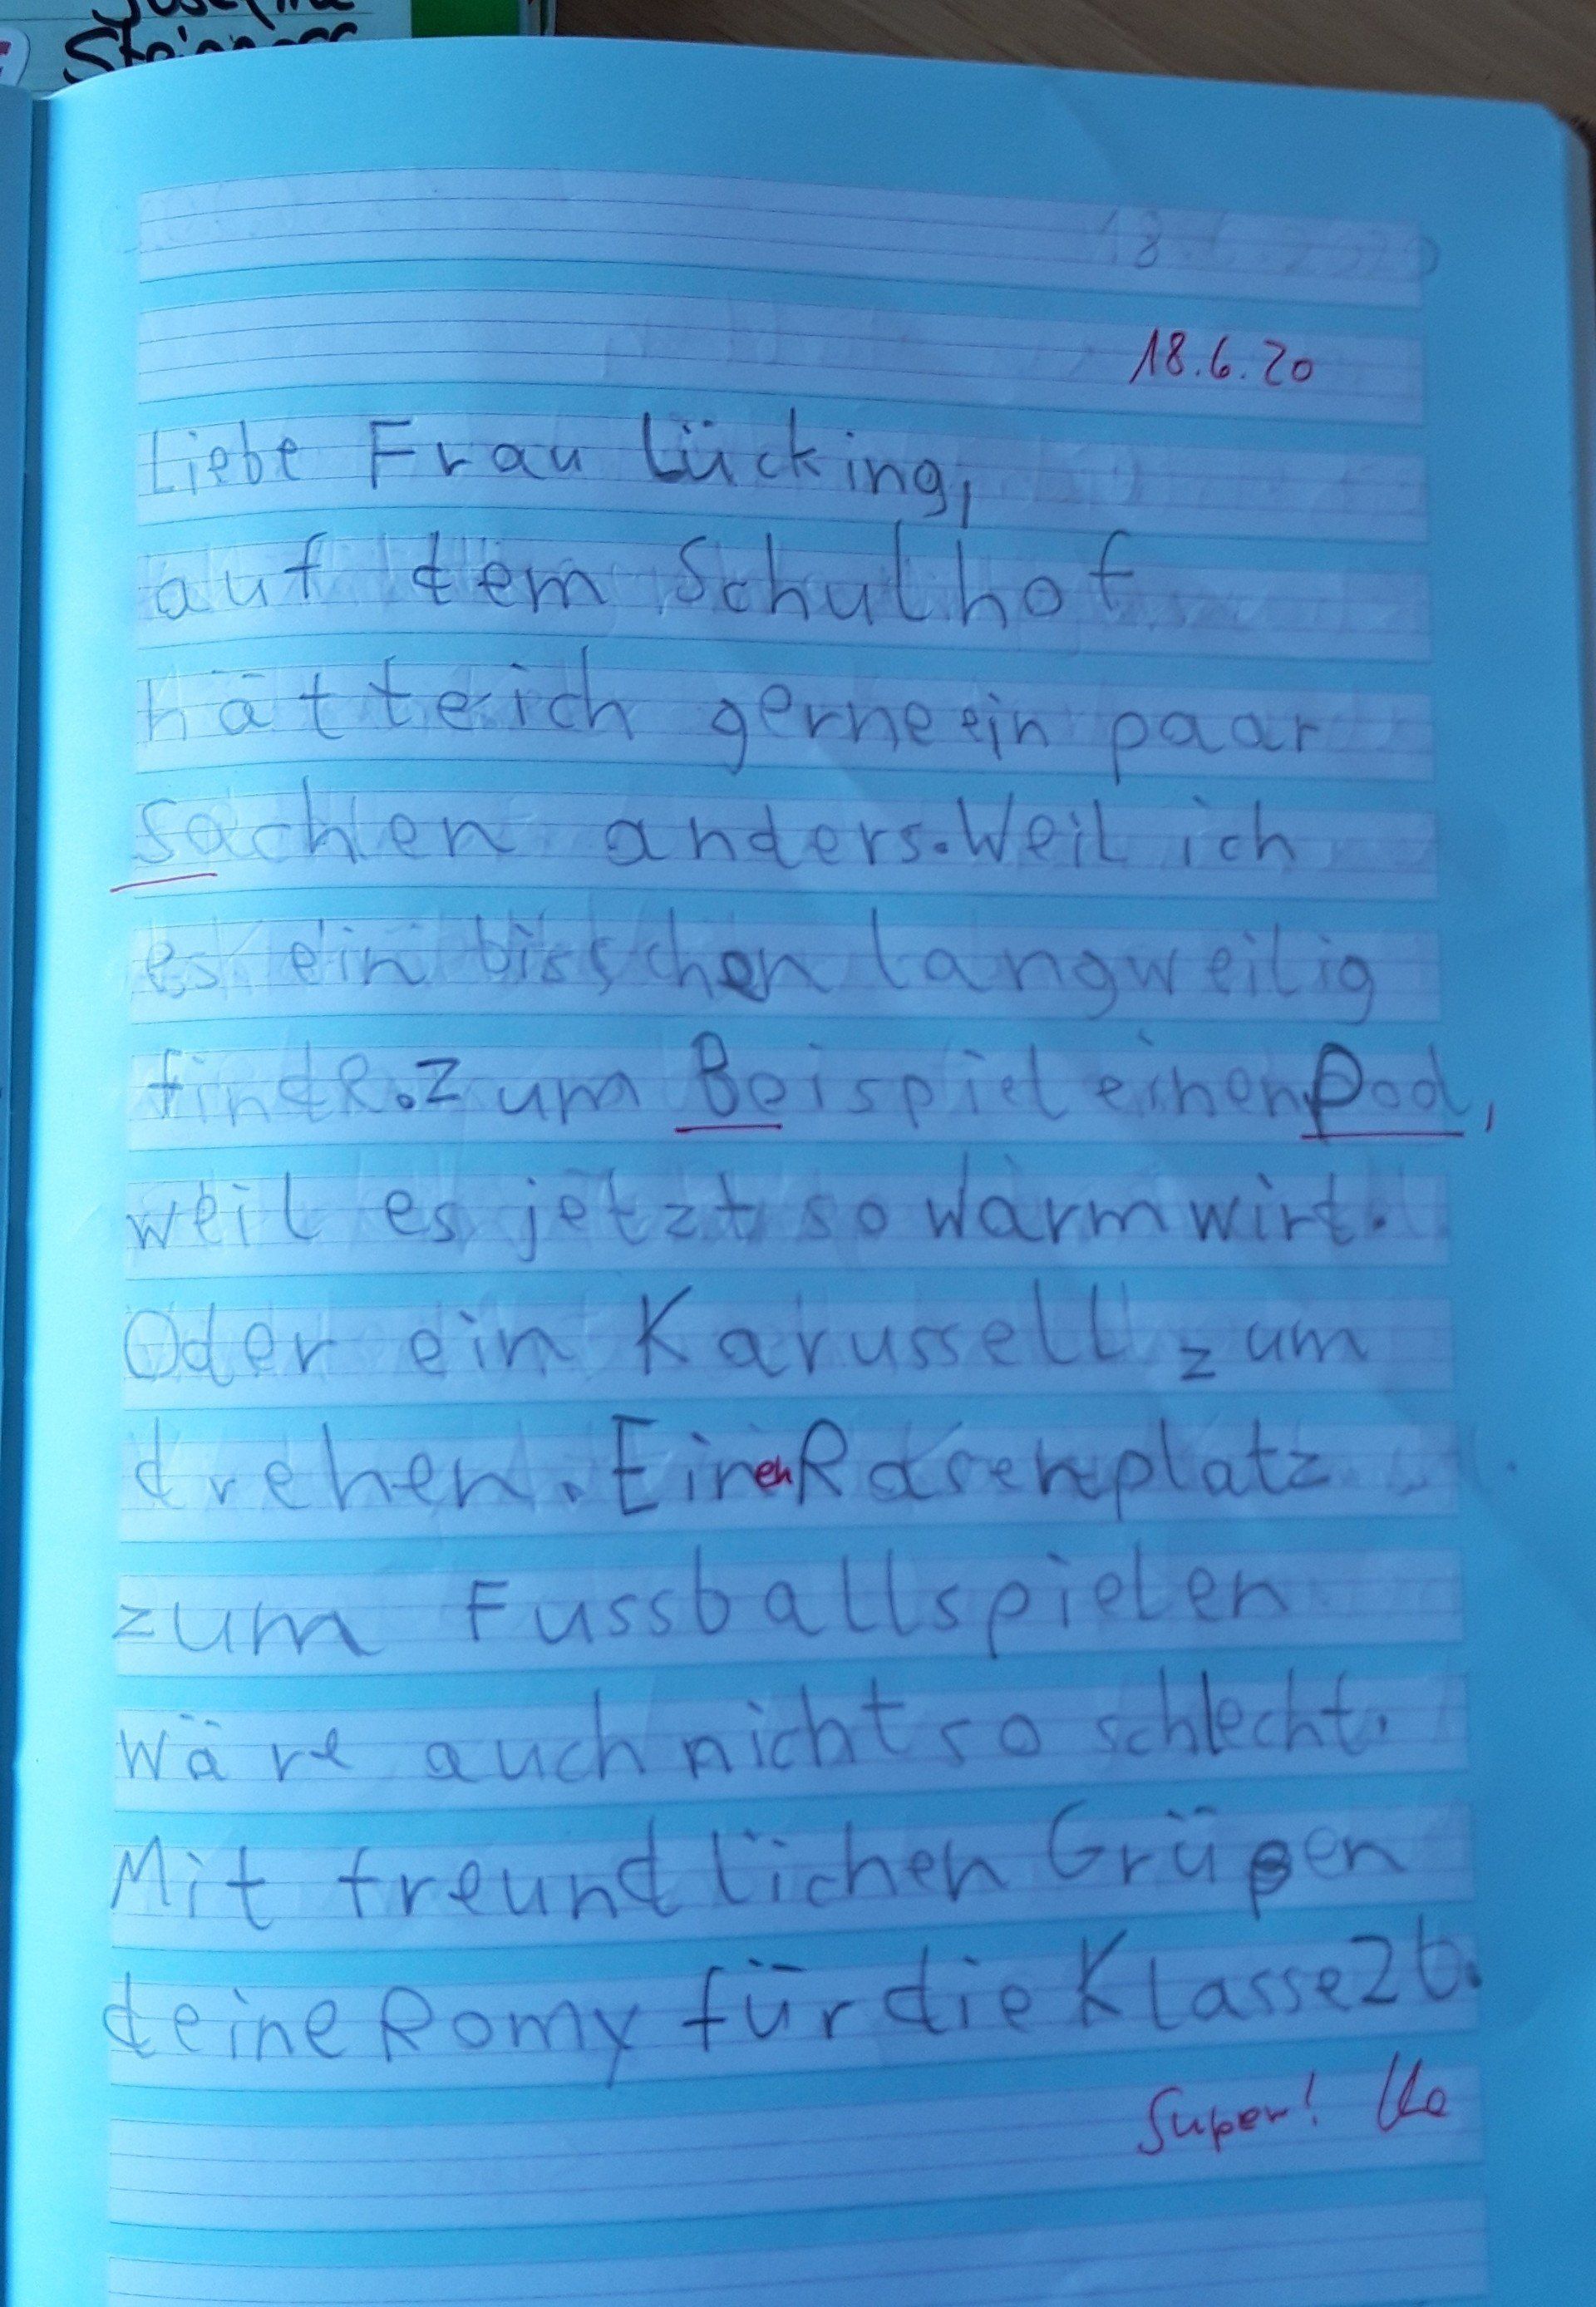 18.6.2020
18.6.20
Liebe Frau Lücking,
auf dem Schulhof
hätte ich gerne ein paar
Sachen anders. Weil ich
es ein bisschen langweilig
finde. Zum Beispiel einen Pool,
weil es jetzt so warm wirt.
Oder ein Karussell zum
drehen. Einen Rasenplatz
zum Fussballspielen
wäre auch nicht so schlecht.
Mit freundlichen Grüßen
deine Romy für die Klasse 2b.
Super!